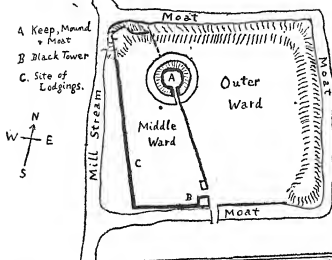 Moat
A Keep, Mound
& Moat
B Black Tower
C. Site of
Lodgings.
N
W E
S
Mill Stream
A
Outer
Ward
Moat
Middle
Ward
C
B
Moat